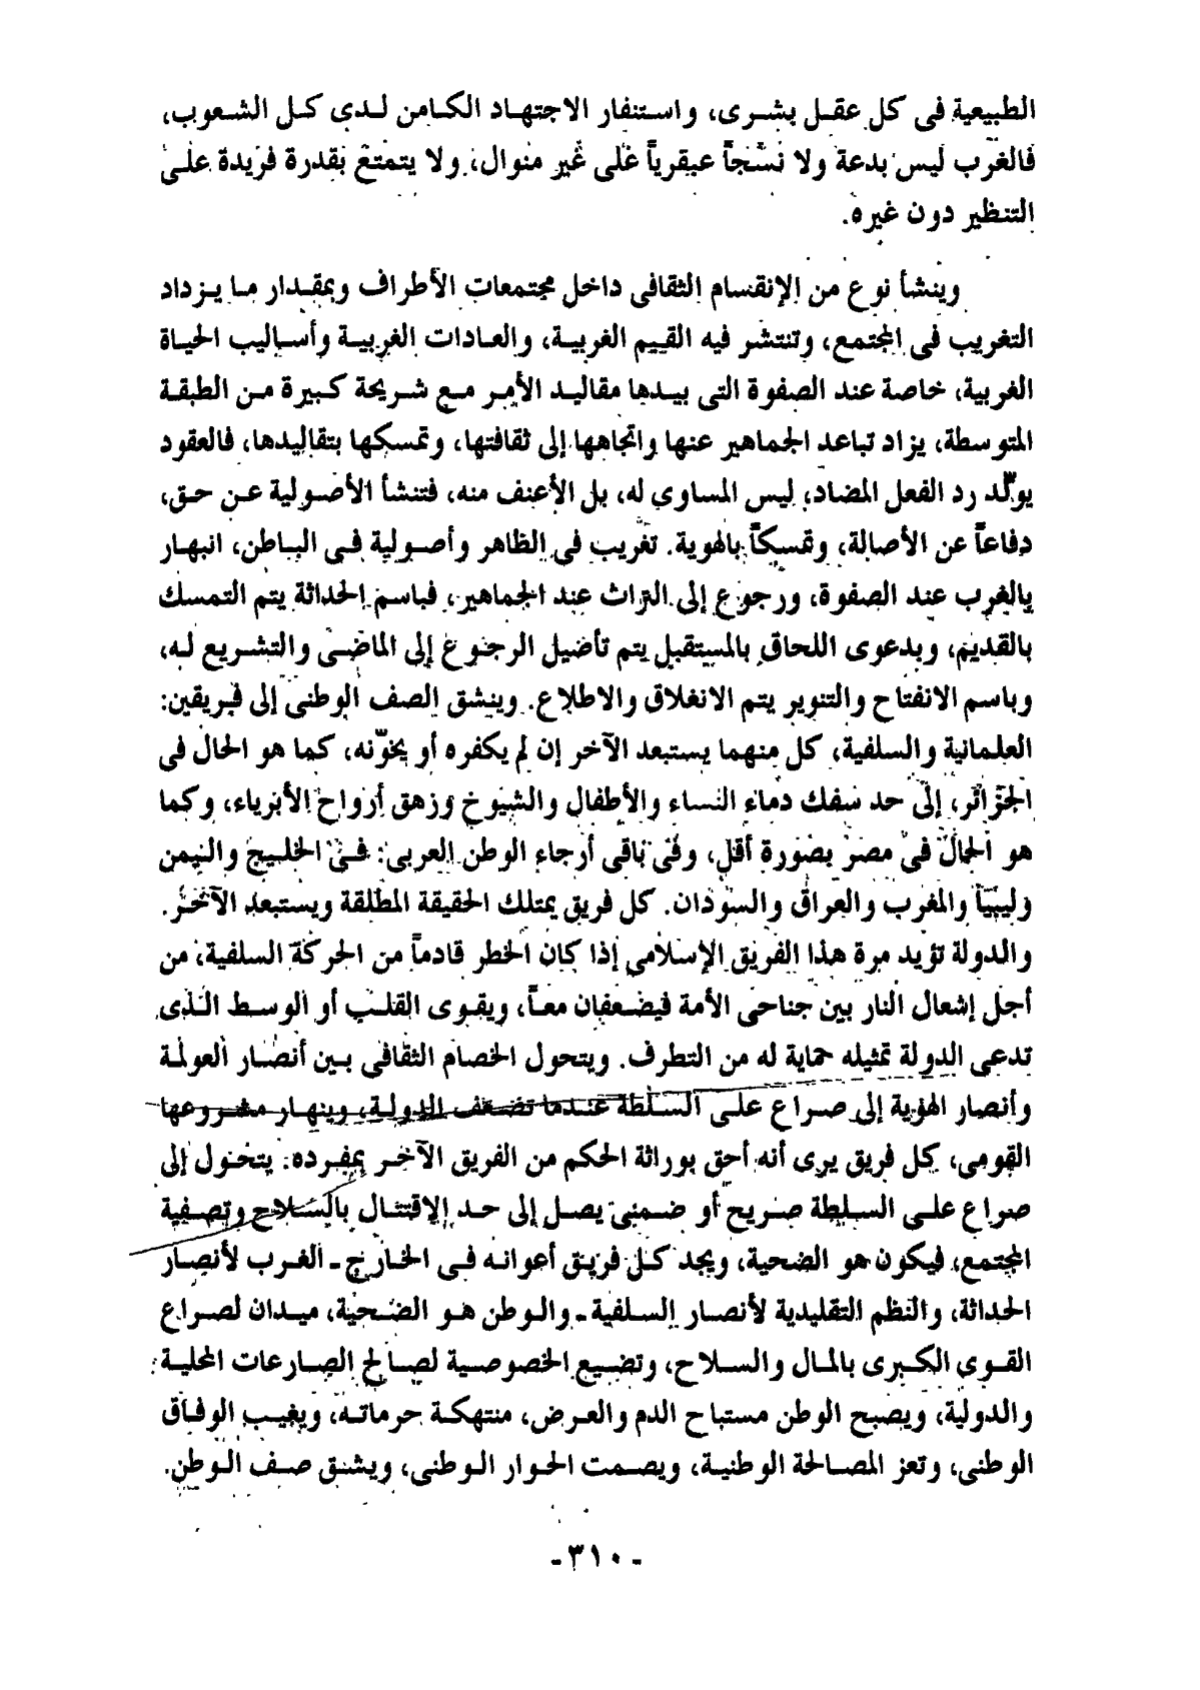 الطبيعية فى كل عقل بشرى، واستنفار الاجتهاد الكامن لدى كل الشعوب،
فالغرب ليس بدعة ولا نسجاً عبقرياً على غير منوال، ولا يتمتع بقدرة فريدة على
التنظير دون غيره.
وينشأ نوع من الإنقسام الثقافى داخل مجتمعات الأطراف وبمقدار ما يزداد
التغريب فى المجتمع، وتنتشر فيه القيم الغربية، والعادات الغربية وأساليب الحياة
الغربية، خاصة عند الصفوة التى بيدها مقاليد الأمر مع شريحة كبيرة من الطبقة
المتوسطة، يزاد تباعد الجماهير عنها واتجاهها إلى ثقافتها، وتمسكها بتقاليدها، فالعقود
يولّد رد الفعل المضاد، ليس المساوى له، بل الأعنف منه، فتنشأ الأصولية عن حق،
دفاعاً عن الأصالة، وتمسكاً بالهوية. تغريب فى الظاهر وأصولية فى الباطن، انبهار
بالغرب عند الصفوة، ورجوع إلى التراث عند الجماهير، فباسم الحداثة يتم التمسك
بالقديم، وبدعوى اللحاق بالمستقبل يتم تأصيل الرجوع إلى الماضى والتشريع له،
وباسم الانفتاح والتنوير يتم الانغلاق والاطلاع. وينشق الصف الوطنى إلى فريقين:
العلمانية والسلفية، كل منهما يستبعد الآخر إن لم يكفره أو يخوّنه، كما هو الحال فى
الجزائر، إلى حد سفك دماء النساء والأطفال والشيوخ وزهق أرواح الأبرياء، وكما
هو الحال فى مصر بصورة أقل، وفى باقى أرجاء الوطن العربى: فى الخليج واليمن
وليبيا والمغرب والعراق والسودان. كل فريق يمتلك الحقيقة المطلقة ويستبعد الآخر.
والدولة تؤيد مرة هذا الفريق الإسلامى إذا كان الخطر قادماً من الحركة السلفية، من
أجل إشعال النار بين جناحى الأمة فيضعفان معاً، ويقوى القلب أو الوسط الذى
تدعى الدولة تمثيله حماية له من التطرف. ويتحول الخصام الثقافى بين أنصار العولمة
وأنصار الهوية إلى صراع على السلطة عندما تضعف الدولة، وينهار مشروعها
القومى، كل فريق يرى أنه أحق بوراثة الحكم من الفريق الآخر بمفرده. يتحول إلى
صراع على السلطة صريح أو ضمنى يصل إلى حد الاقتتال بالسلاح وتصفية
المجتمع، فيكون هو الضحية، ويجد كل فريق أعوانه فى الخارج - الغرب لأنصار
الحداثة، والنظم التقليدية لأنصار السلفية - والوطن هو الضحية، ميدان لصراع
القوى الكبرى بالمال والسلاح، وتضيع الخصوصية لصالح الصارعات المحلية
والدولية، ويصبح الوطن مستباح الدم والعرض، منتهكة حرماته، ويغيب الوفاق
الوطنى، وتعز المصالحة الوطنية، ويصمت الحوار الوطنى، ويشق صف الوطن.
- ٣١٠ -